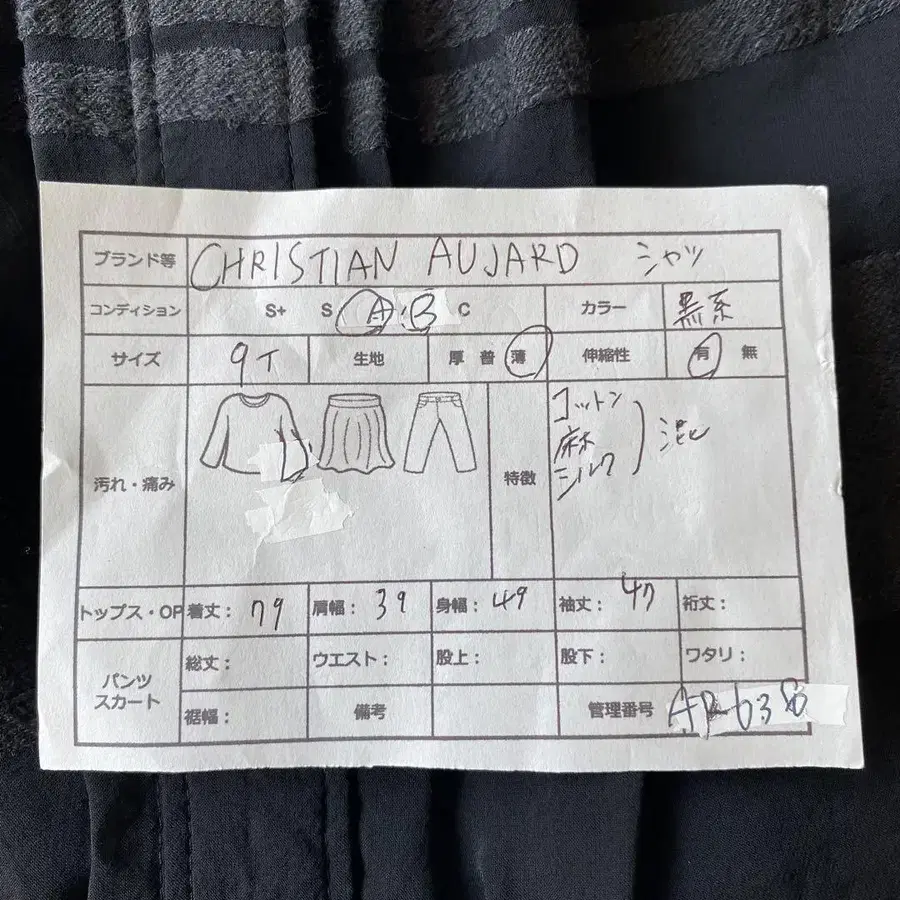 ブランド等 CHRISTIAN AUJARD シャツ
コンディション S+ S A B C カラー 黒系
サイズ 9T 生地 厚 普 薄 伸縮性 有 無
汚れ・痛み 特徴 コットン
麻
シルク
混
トップス・OP 着丈: 79 肩幅: 39 身幅: 49 袖丈: 47 裄丈:
パンツ
スカート
総丈: ウエスト: 股上: 股下: ワタリ:
裾幅: 備考 管理番号